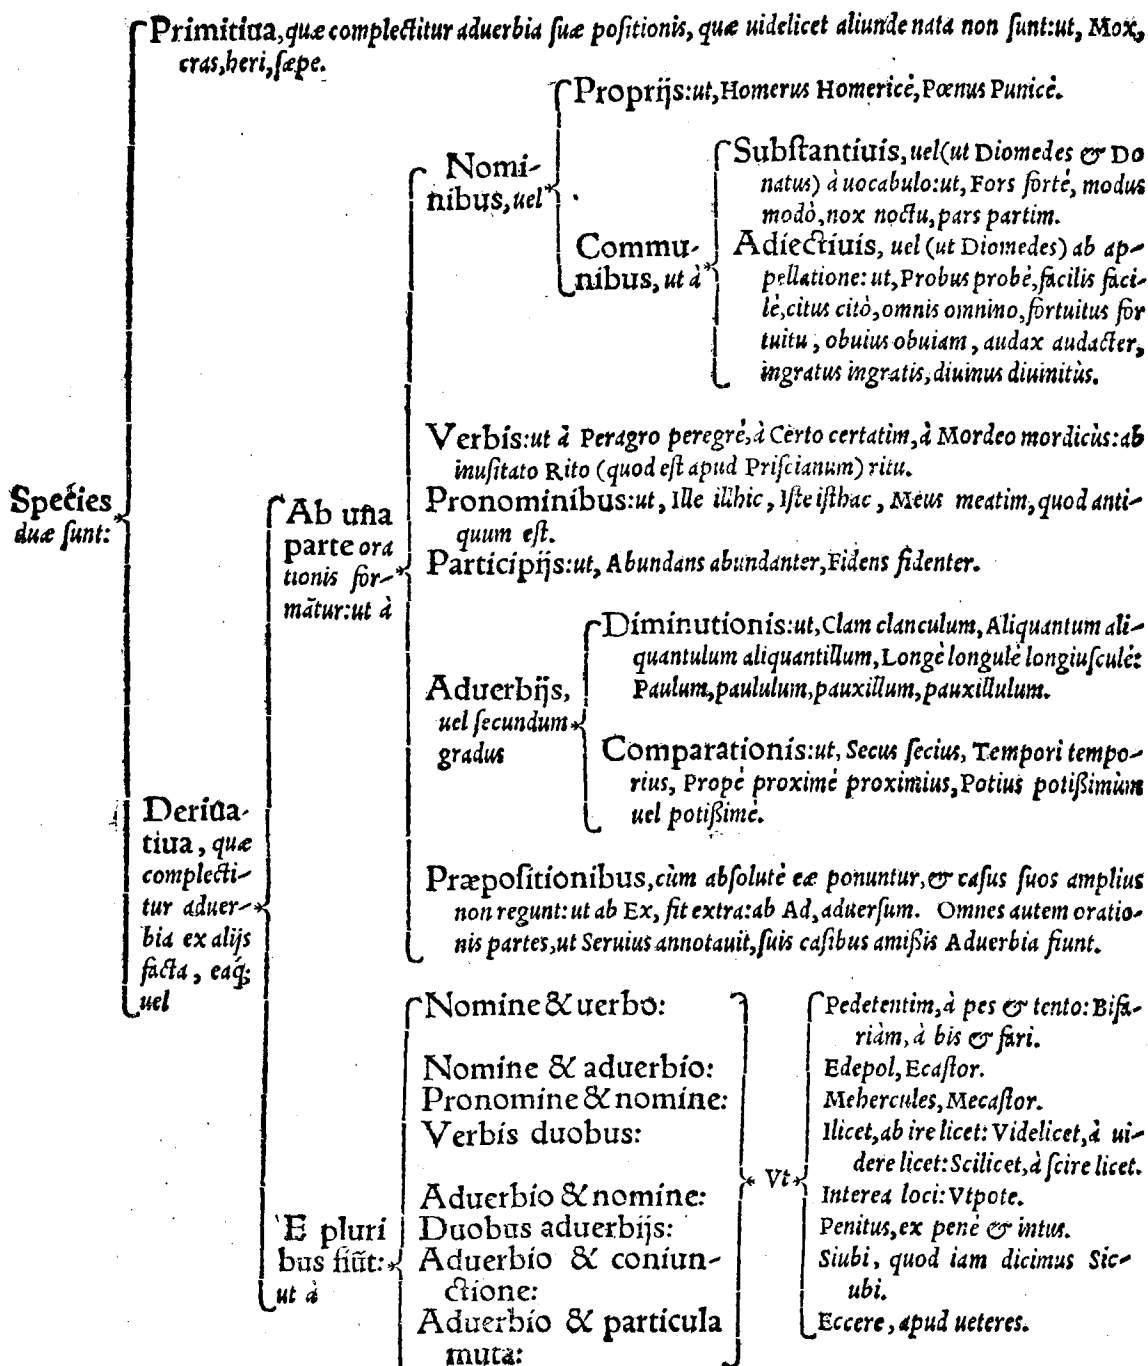 Primitiua, quæ complectitur aduerbia ſuæ poſitionis, quæ uidelicet aliunde nata non ſunt:ut, Mox,
cras,heri,ſæpe.
Proprijs:ut,Homerus Homericè,Pœnus Punicè.
Nomi-
nibus,uel
Subſtantiuis, uel(ut Diomedes & Do
natus) à uocabulo:ut, Fors fortè, modus
modò,nox noctu,pars partim.
Commu-
nibus, ut à
Adiectiuis, uel (ut Diomedes) ab ap-
pellatione: ut, Probus probè,facilis faci-
lè,citus citò,omnis omnino,fortuitus for
tuitu, obuius obuiam, audax audacter,
ingratus ingratis,diuinus diuinitùs.
Verbis:ut à Peragro peregrè,à Certo certatim,à Mordeo mordicùs:ab
inuſitato Rito (quod eſt apud Priſcianum) ritu.
Species
duæ ſunt:
Ab una
parte ora
tionis for-
mātur:ut à
Pronominibus:ut, Ille illhic, Iſte iſthac, Meus meatim, quod anti-
quum eſt.
Participijs:ut, Abundans abundanter,Fidens fidenter.
Diminutionis:ut,Clam clanculum, Aliquantum ali-
quantulum aliquantillum,Longè longulè longiuſculè:
Paulum,paululum,pauxillum,pauxillulum.
Aduerbijs,
uel ſecundum
gradus
Comparationis:ut, Secus ſecius, Tempori tempo-
rius, Propè proximè proximius,Potius potißimùm
uel potißimè.
Deriua-
tiua, quæ
complecti-
tur aduer-
bia ex alijs
facta, eaq́;
uel
Præpoſitionibus,cùm abſolutè eæ ponuntur,& caſus ſuos amplius
non regunt: ut ab Ex, fit extra:ab Ad,aduerſum. Omnes autem oratio-
nis partes,ut Seruius annotauit,ſuis caſibus amißis Aduerbia fiunt.
E pluri
bus fiūt:
ut à
Nomine & uerbo:
Nomine & aduerbio:
Pronomine & nomine:
Verbis duobus:
Aduerbio & nomine:
Duobus aduerbijs:
Aduerbio & coniun-
ctione:
Aduerbio & particula
muta:
Vt
Pedetentim,à pes & tento: Bifa-
riàm,à bis & fari.
Edepol,Ecaſtor.
Mehercules,Mecaſtor.
Ilicet,ab ire licet: Videlicet,à ui-
dere licet:Scilicet,à ſcire licet.
Interea loci: Vtpote.
Penitus, ex penè & intus.
Siubi, quod iam dicimus Sic-
ubi.
Eccere, apud ueteres.